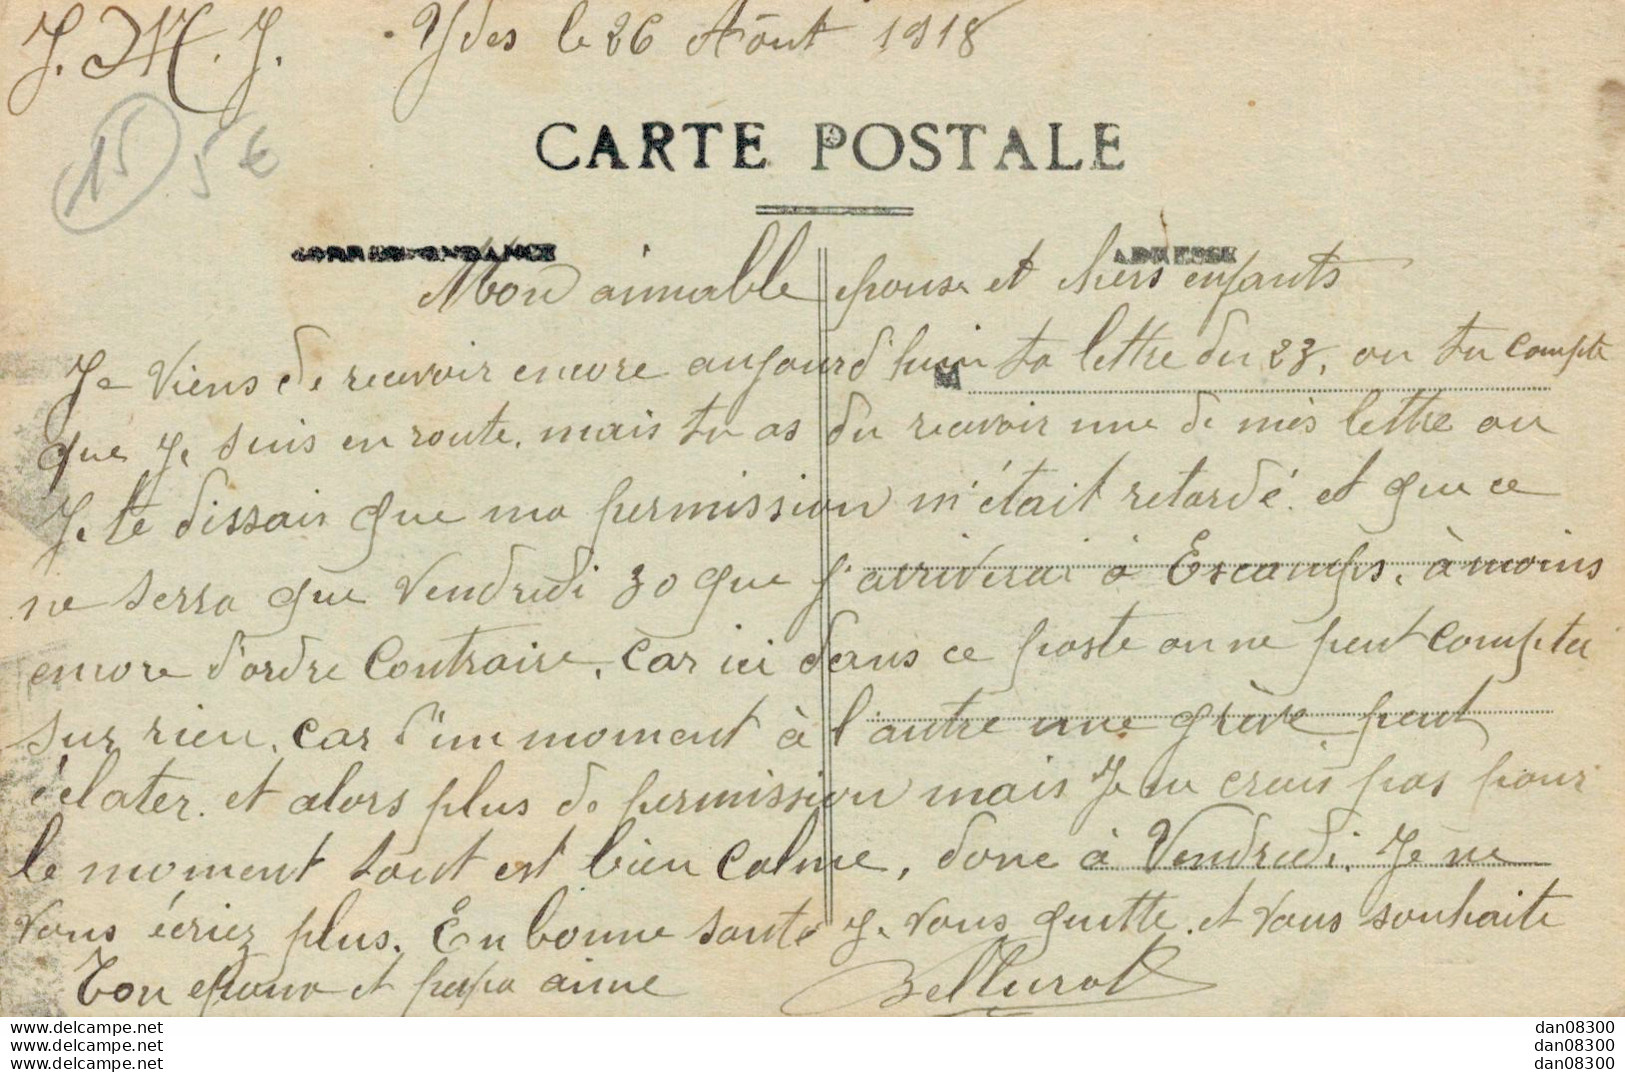 J. M. J. Ydes le 26 Août 1918
15 5€
CARTE POSTALE
CORRESPONDANCE ADRESSE
Mon aimable epouse et chers enfants
Je viens de recevoir encore aujourd'huin ta lettre du 23, ou tu compte
que Je suis en route, mais tu as du recevoir une de mès lettre ou
Je te dissais que ma permission m'était retardé. et que ce
ne serra que Vendredi 30 que j'arriverai à Escamps, à moins
encore d'ordre Contraire, car ici dans ce poste on ne peut Compter
sur rien, car d'un moment à l'autre une grève peut
éclater. et alors plus de permission mais Je ne crois pas pour
le moment tout est bien Calme, donc à Vendredi. Je ne
vous écriez plus. En bonne santé Je vous quitte. et vous souhaite
Ton epoux et papa aime
www.delcampe.net dan08300
www.delcampe.net dan08300
www.delcampe.net dan08300